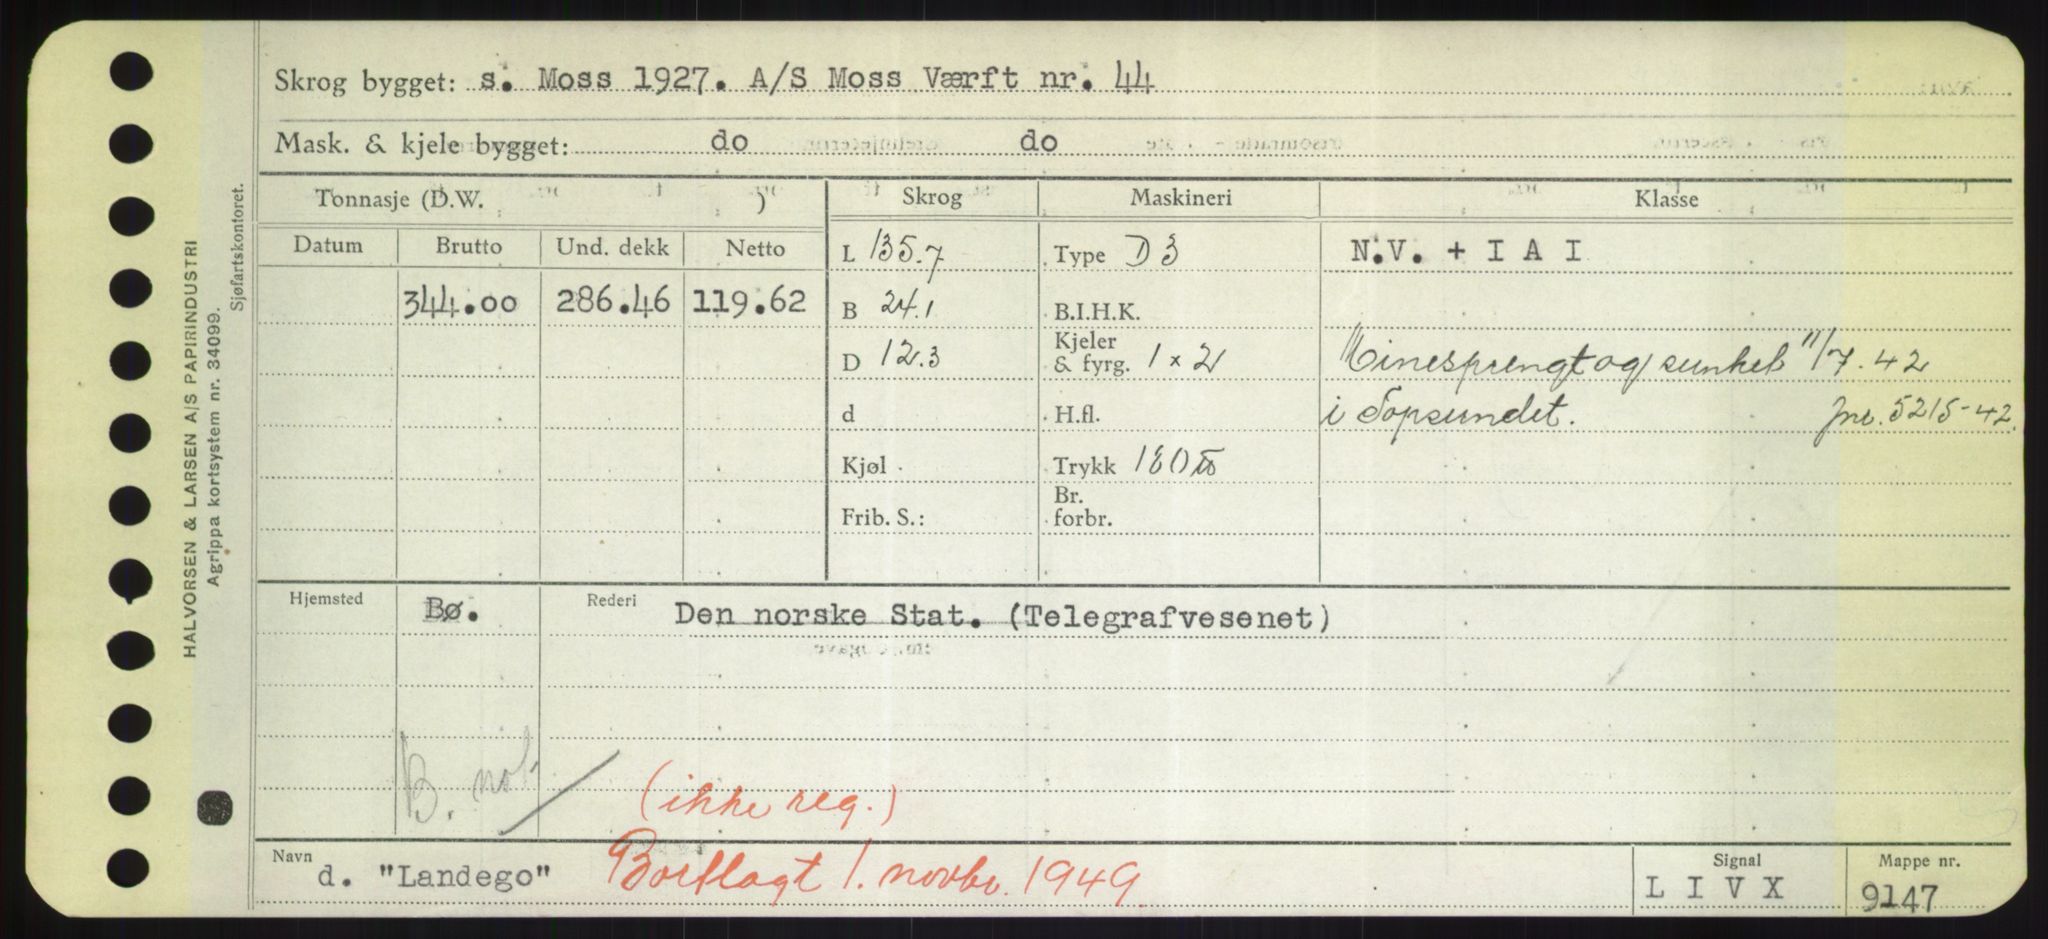 Skrog bygget: s. Moss 1927. A/S Moss Værft nr. 44
Mask. & kjele bygget: do do
Tonnasje (D.W. ) Skrog Maskineri Klasse
Datum Brutto Und. dekk Netto L 135.7 Type D 3 N.V. + I A I
344.00 286.46 119.62 B 24.1 B.I.H.K.
D 12.3 Kjeler & fyrg. 1 x 2 Minesprengt og sunket 11/7. 42
d H.fl. i Sopsundet. jnr. 5215-42.
Kjøl Trykk 180
Frib. S.: Br. forbr.
Hjemsted Bø. Rederi Den norske Stat. (Telegrafvesenet)
B. not
(ikke reg.)
Navn d. "Landego" Bortlagt 1. novbr. 1949. Signal L I V X Mappe nr. 9147
HALVORSEN & LARSEN A/S PAPIRINDUSTRI
Agrippa kortsystem nr. 34099.
Sjøfartskontoret.